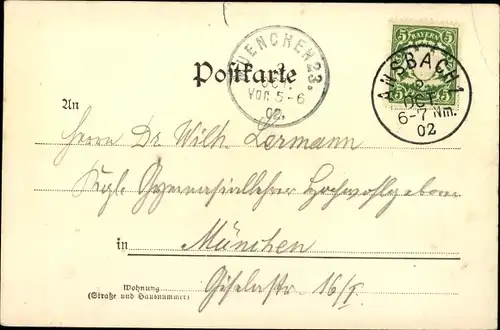 5 BAYERN 5
MUENCHEN 23.
OCT.
Vor. 5-6
02.
ANSBACH 1
2
OCT
6-7 Nm.
02
Postkarte
An
Herrn Dr. Wilh. Lermann
Kgl. Gymnasiallehrer Hochwohlgeboren
in München
Wohnung
(Straße und Hausnummer)
Giselastr. 16/I.